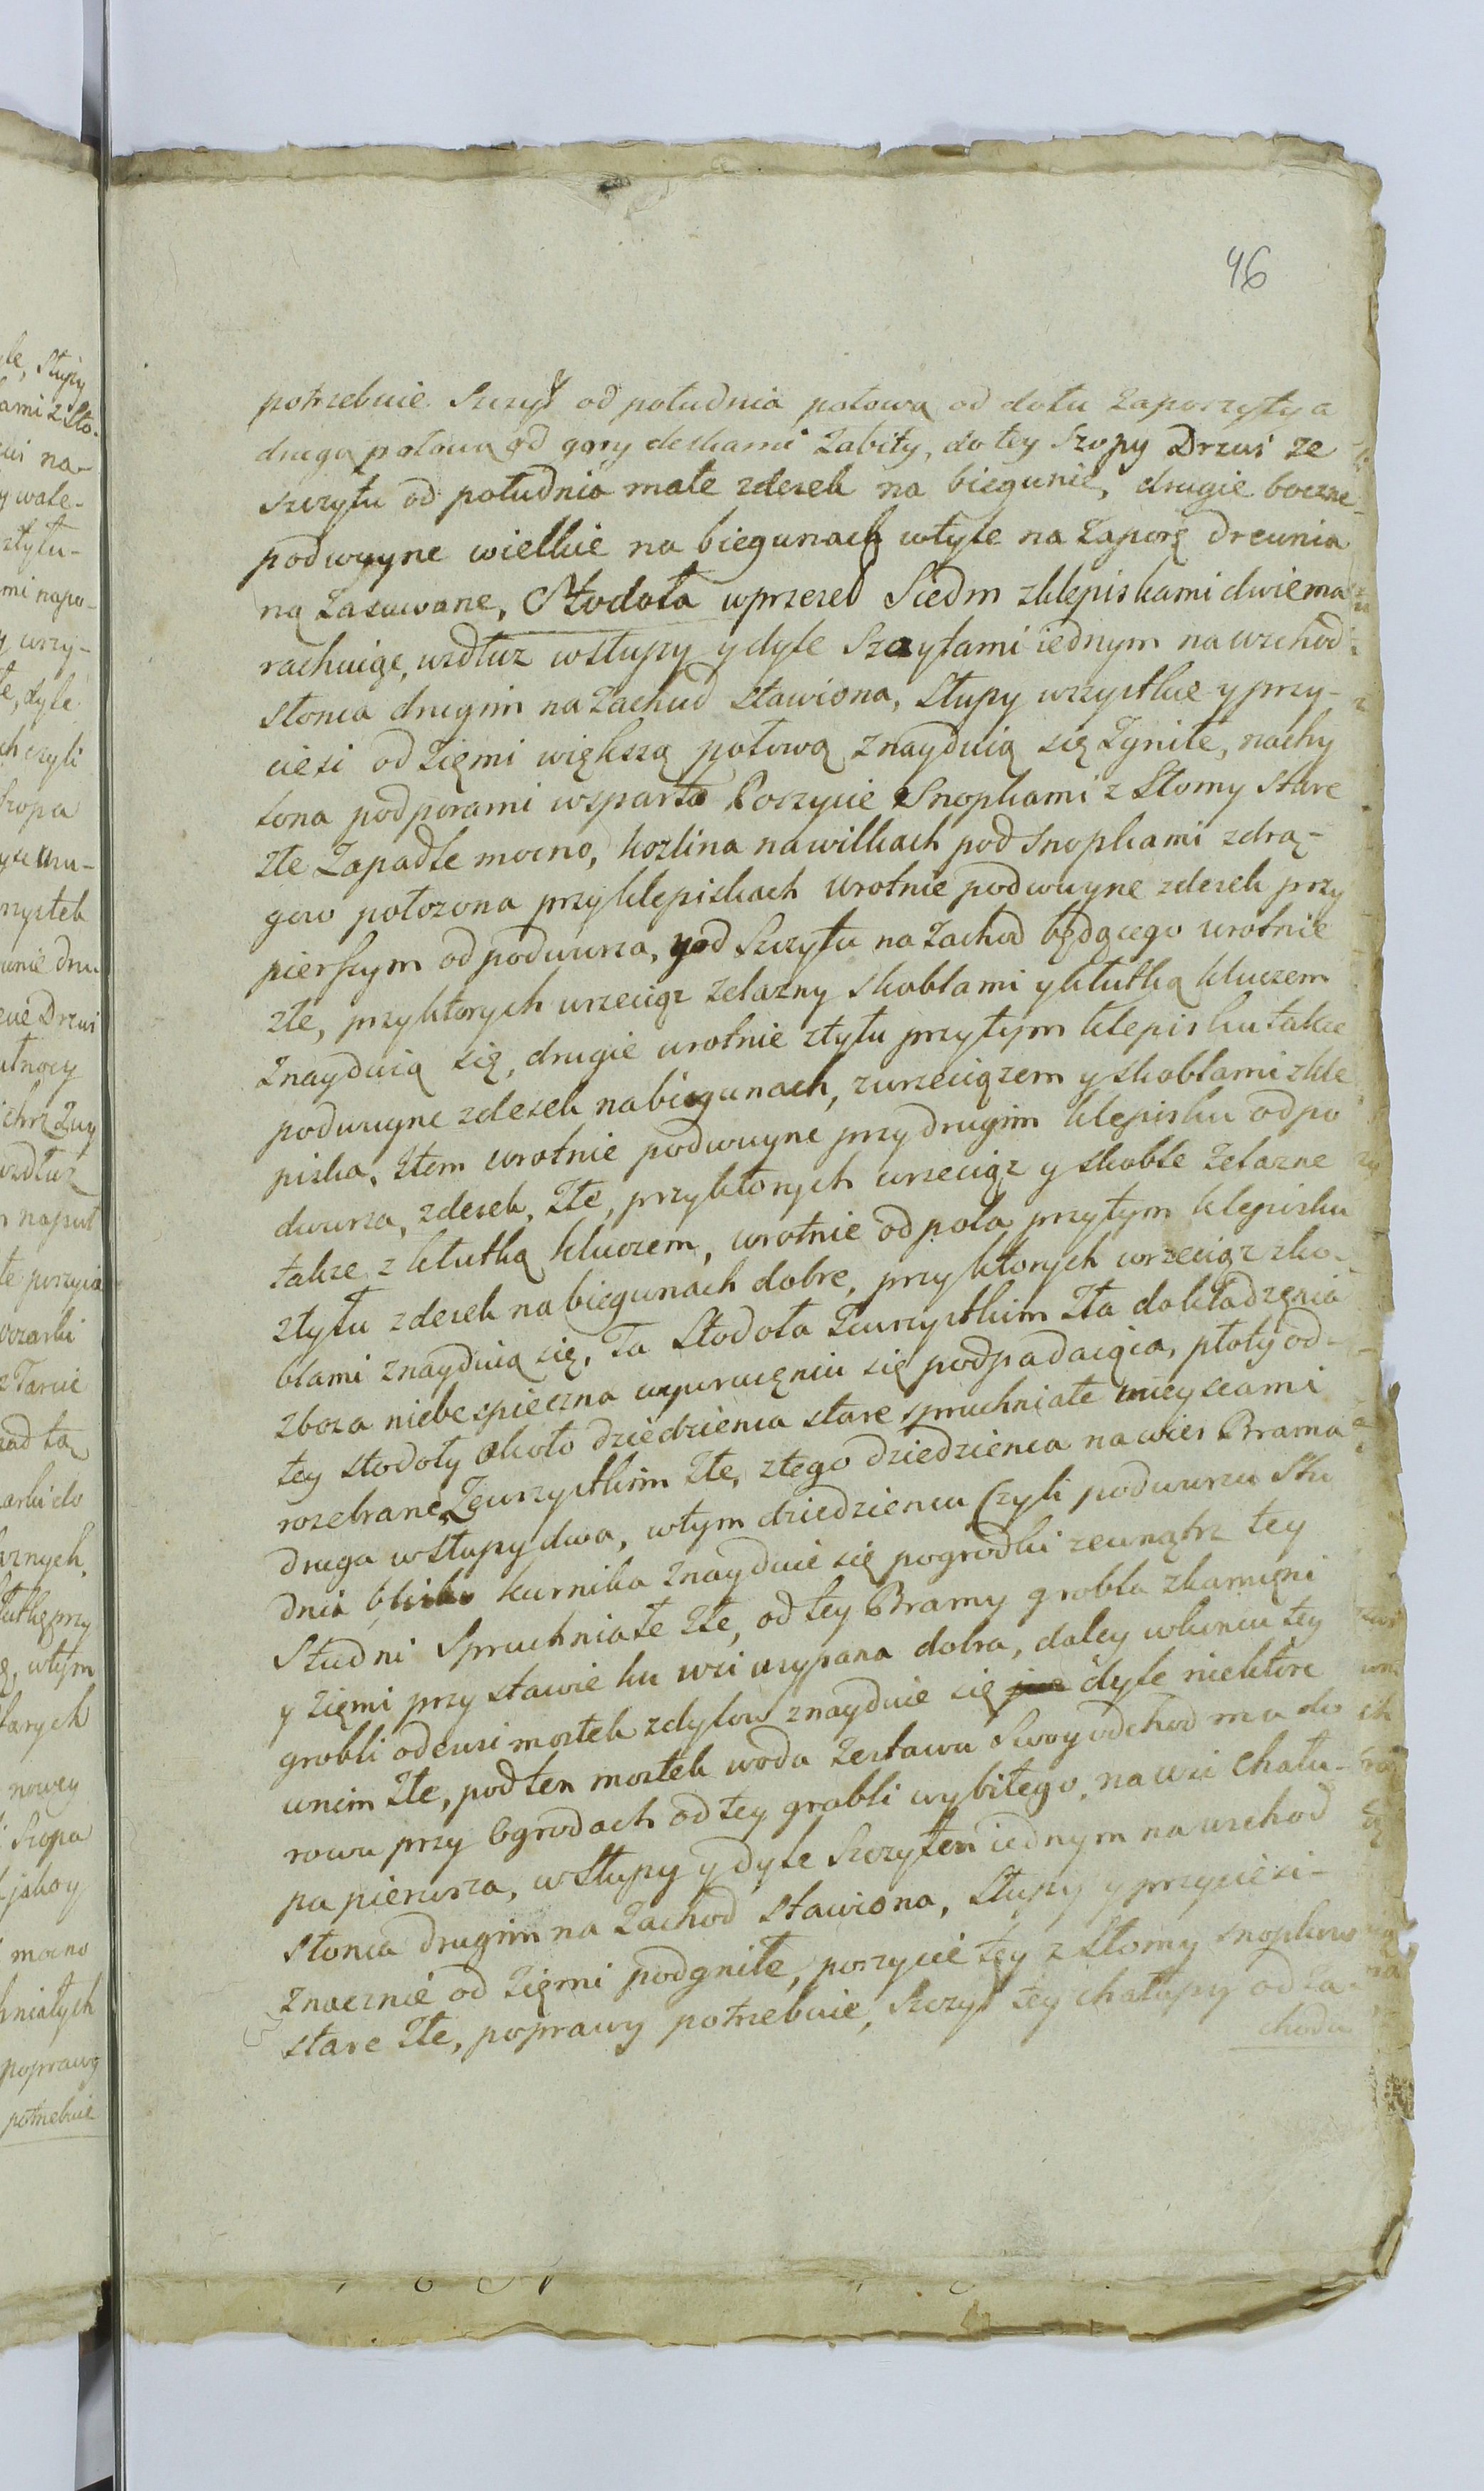 46
potrzebuie Szczyt od południa połową od dołu Zaporzyty a
drugą połową od gory deskami Zabity, do tey Szopy Drzwi ze
szczytu od południa małe zdesek na biegunie, drugie boczne
podwuyne wielkie na biegunach wtyle na Zaporę drewnia
ną Zasuwane, Stodoła wprzeseł Siedm zklepiskami dwiema
rachuiąc, wzdłuż wsłupy y dyle Szczytami iednym na wschod
słonca drugim na Zachud stawiona, Słupy wszystkie y przy-
ciesi od Ziemi większą połową Znayduią się Zgniłe, nachy
lona podporami wsparta Poszycie Snopkami z Słomy stare
złe Zapadłe mocno, kozlina na wilkach pod Snopkami zdrą-
gow połozona przyklepiskach wrotnie podwuyne zdesek przy
pierszym od podwurza, y od Szczytu na Zachod będącego wrotnie
złe, przyktorych wrzeciąz zelazny skoblami y kłutką kluczem
Znayduią się, drugie wrotnie ztyłu przytym klepisku takze
podwuyne zdesek na biegunach, zwrzeciązem y skoblami zkle
piska, złem wrotnie podwuyne przy drugim klepisku od po
dwurza, zdesek, złe, przyktorych wrzeciąz y skoble zelazne
takze z kłutką kluczem, wrotnie od pola przytym klepisku
ztyłu zdesek na biegunach dobre, przyktorych wrzeciąz zko-
blami znayduią się, Ta Stodoła Zewszystkim Zła do kładzenia
zboza niebespieczna wywruceniu się podpadaiąca, płoty od-
tey stodoły około dziedzienca stare spruchniałe mieyscami
rozebrane, Zewszystkim złe, ztego dziedzienca na wies Brama
druga wsłupy dwa, wtym dziedziencu Czyli podwurzu Stu
dnia blisko kurnika Znayduie się pogrodki zewnątrz tey
Studni Spruchniałe złe, od tey Bramy grobla zkamieni
y Ziemi przy stawie ku wsi usypana dobra, daley wkoncu tey
grobli odewsi mostek zdylow znayduie się dyle niektore
wnim złe, pod ten mostek woda Zestawu Swoy odchod ma do
rowu przy Ogrodach od tey grobli wybitego, na wsi Chału-
pa pierwsza, wsłupy y dyle Szczytem iednym na wschod
słonca drugim na Zachod stawiona, Słupy y przyciesi-
Znacznie od Ziemi podgniłe, poszycie tey z Słomy snopkow
stare złe, poprawy potrzebuie, Szczyt tey chałupy od Za-
chodu